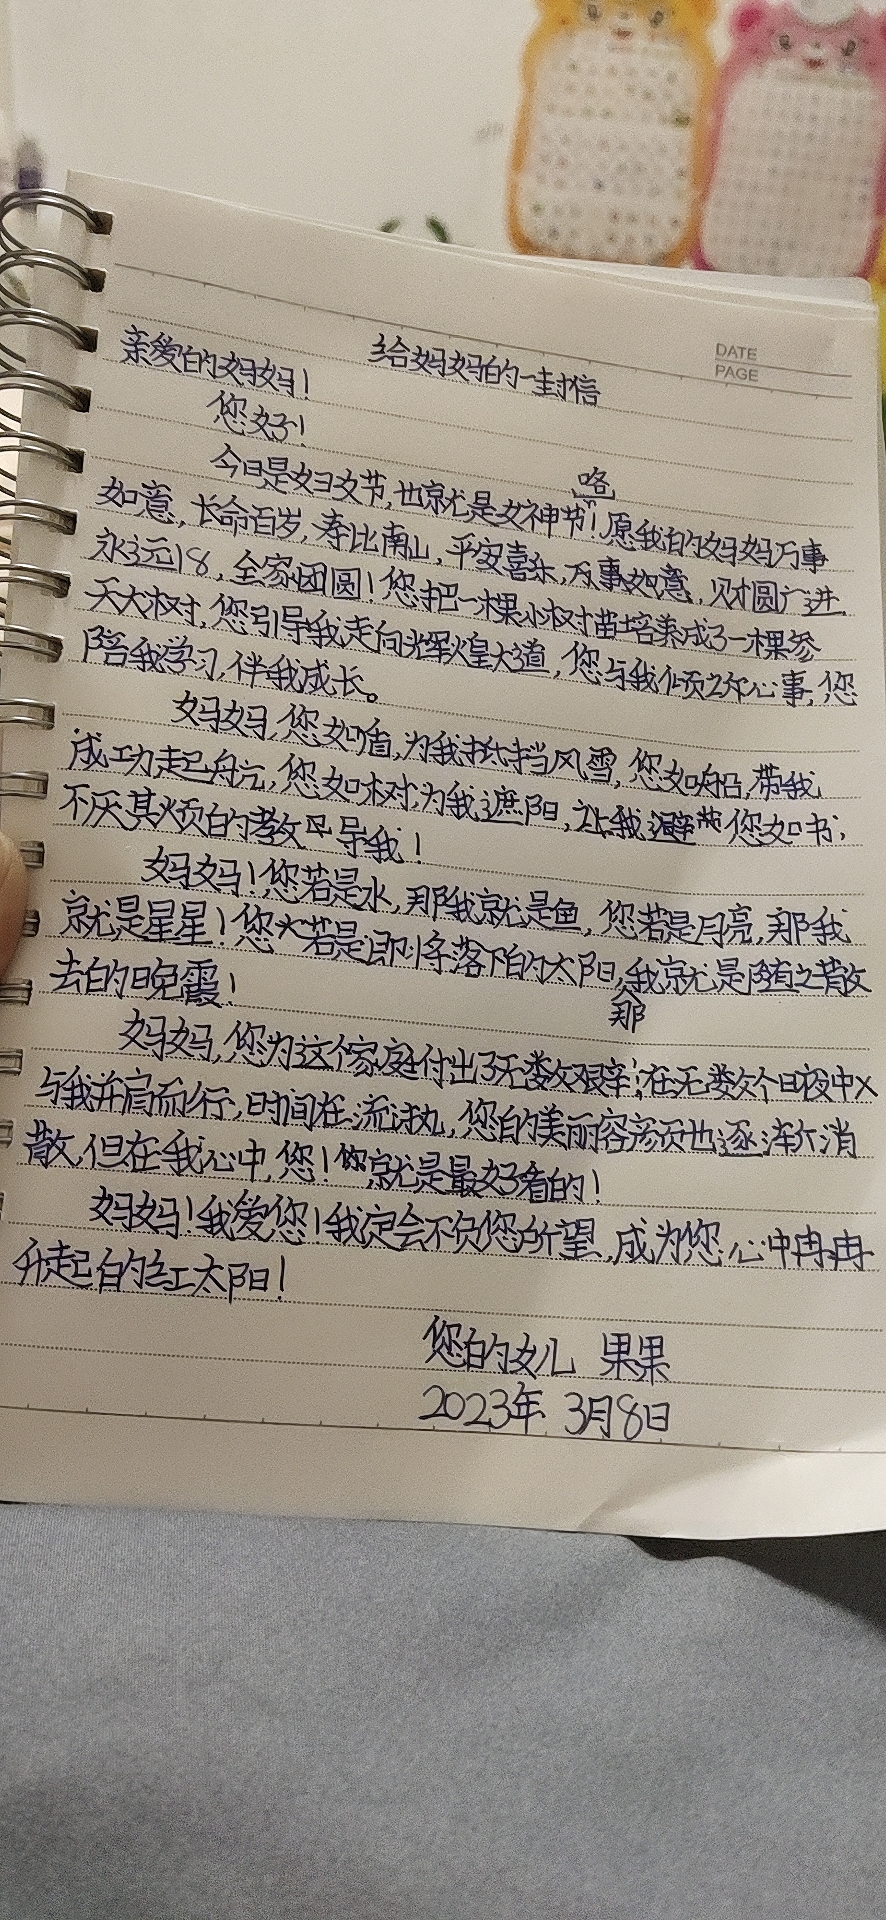 DATE
PAGE
给妈妈的一封信
亲爱的妈妈！
您好！
今日是妇女节，也就是女神节咯！愿我的妈妈万事
如意，长命百岁，寿比南山，平安喜乐，万事如意，财圆广进
永远18，全家团圆！您把一棵小树苗培养成了一棵参
天大树，您引导我走向辉煌大道，您与我倾述心事，您
陪我学习，伴我成长。
妈妈，您如盾，为我抵挡风雪，您如船，带我
成功起航，您如树，为我遮阳，让我避荫您如书，
不厌其烦的教导我！
妈妈！您若是水，那我就是鱼，您若是月亮，那我
就是星星！您若是即将落下的太阳，那我就是随之散
去的晚霞！
妈妈，您为这个家庭付出了无数艰辛；在无数个日夜中
与我并肩而行，时间在流逝，您的美丽容颜也逐渐消
散，但在我心中，您！您就是最好看的！
妈妈！我爱您！我定会不负您所望，成为您心中冉冉
升起的红太阳！
您的女儿 果果
2023年3月8日